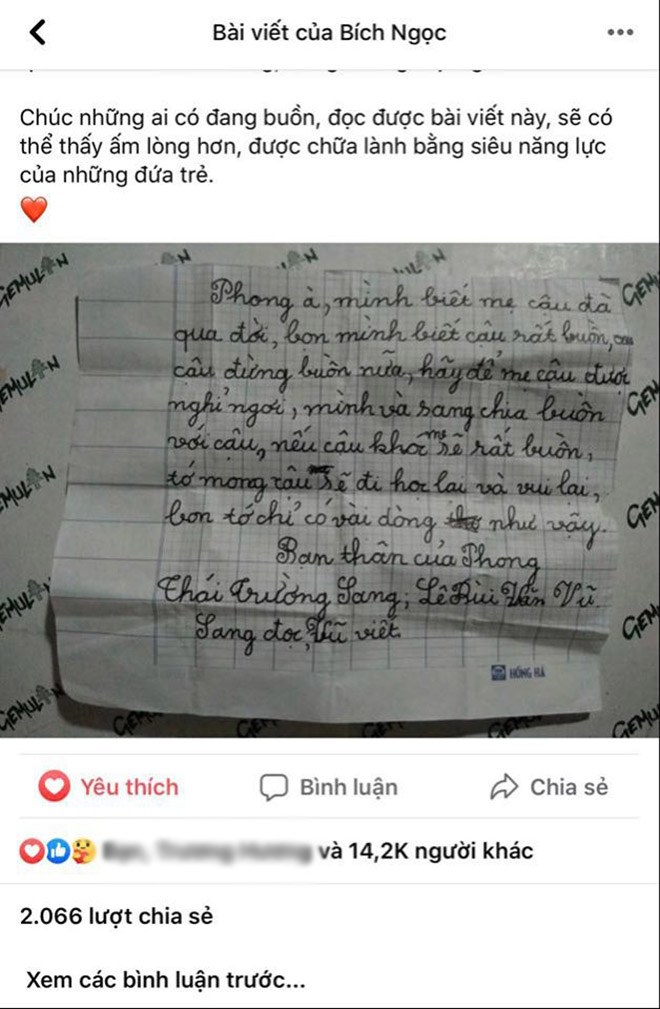 Bài viết của Bích Ngọc
Chúc những ai có đang buồn, đọc được bài viết này, sẽ có
thể thấy ấm lòng hơn, được chữa lành bằng siêu năng lực
của những đứa trẻ.
Phong à, mình biết mẹ câu đã
qua đời, bon mình biết câu rất buồn,
câu đừng buồn nữa, hãy để mẹ cậu được
nghỉ ngơi, mình và sang chia buồn
với cậu, nếu câu khóc mẹ sẽ rất buồn,
tớ mong cậu sẽ đi học lai và vui lai,
bon tớ chỉ có vài dòng như vậy.
Ban thân của Phong
Thái Trường Sang; Lê Bùi Văn Vũ
Sang đọc, Vũ viết.
HỒNG HÀ
GEMULAN
Yêu thích
Bình luận
Chia sẻ
và 14,2K người khác
2.066 lượt chia sẻ
Xem các bình luận trước...